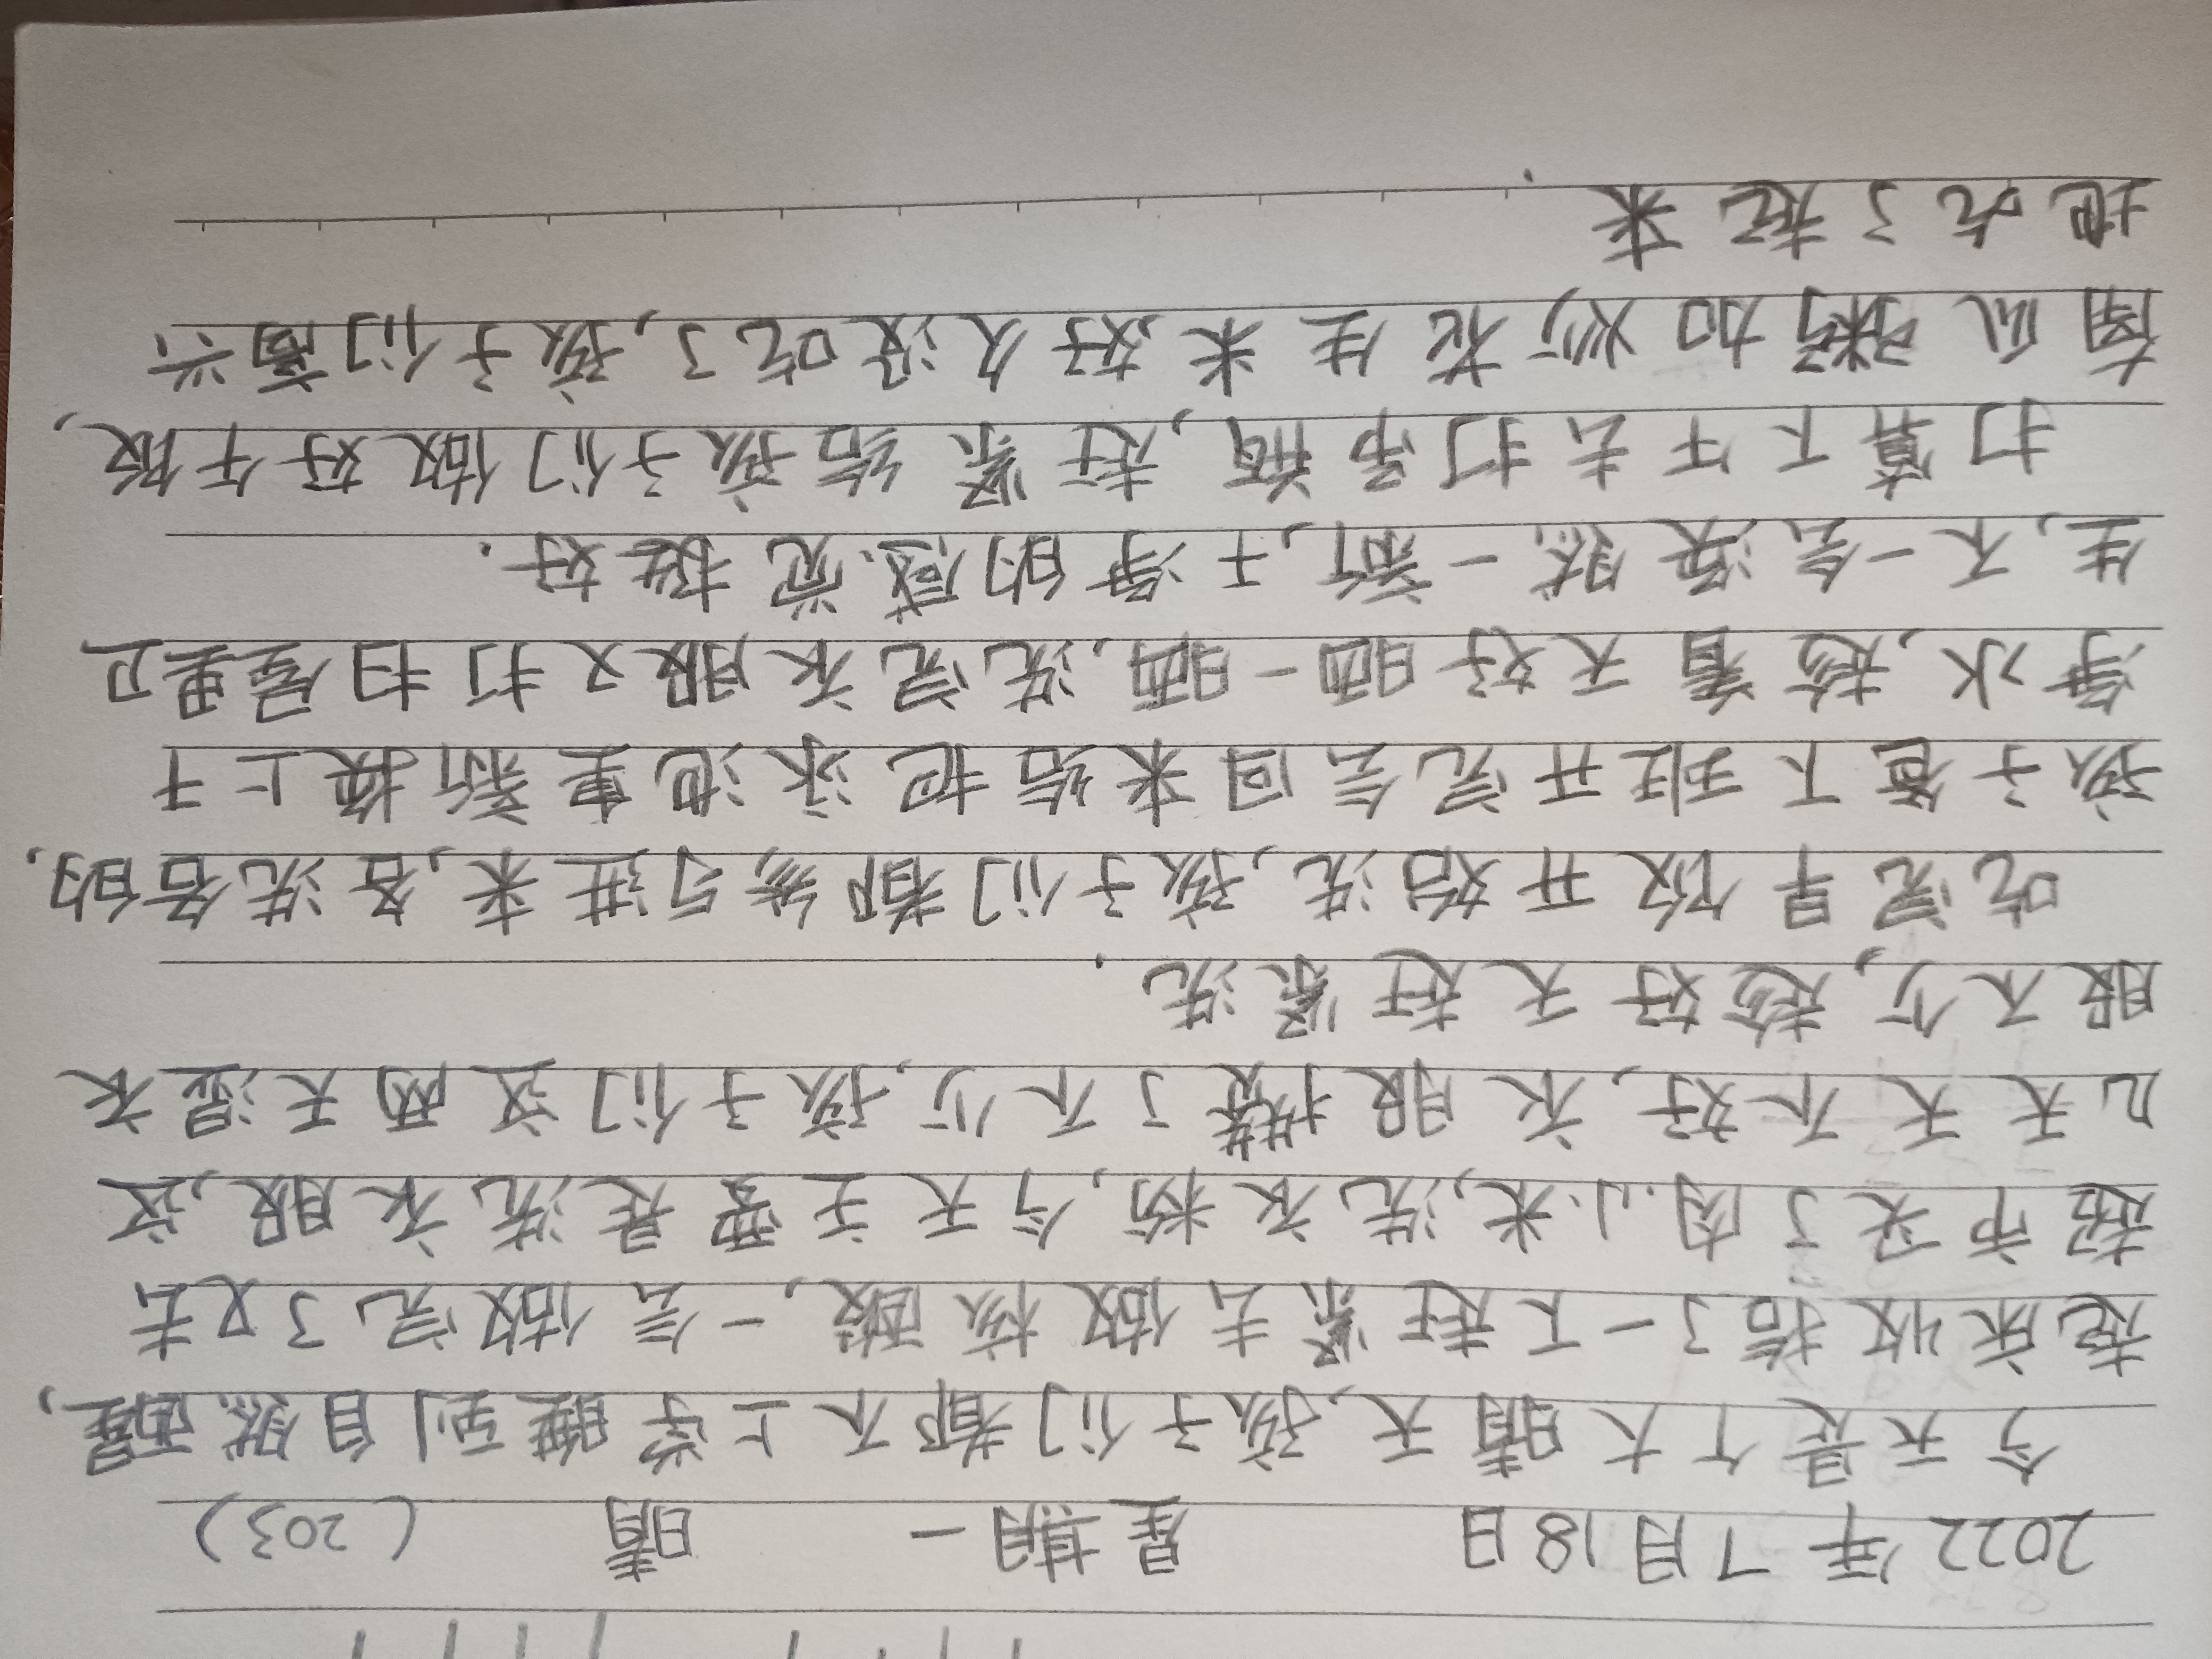 2022年7月18日 星期一 晴 (203)
今天是个大晴天,孩子们都不上学睡到自然醒,
起床收拾了一下赶紧去做核酸,一会做完了又去
超市买了肉.小米,洗衣粉,今天主要是洗衣服,这
几天天不好,衣服攒了不少,孩子们这两天湿衣
服不少,趁好天赶紧洗.
吃完早饭开始洗,孩子们都参与进来,各洗各的,
孩子爸下班开完会回来给把泳池重新换上干
净水,趁着天好晒一晒,洗完衣服又打扫屋里卫
生,不一会焕然一新,干净的感觉挺好.
打算下午去打吊瓶,赶紧给孩子们做好午饭,
南瓜粥加炒花生米,好久没吃了,孩子们高兴
地吃了起来.